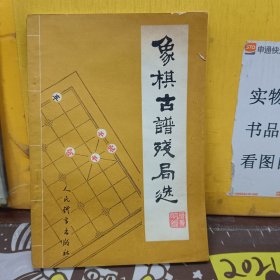 象棋古谱残局选
人民体育出版社
申通快
实物
书品
看图
202